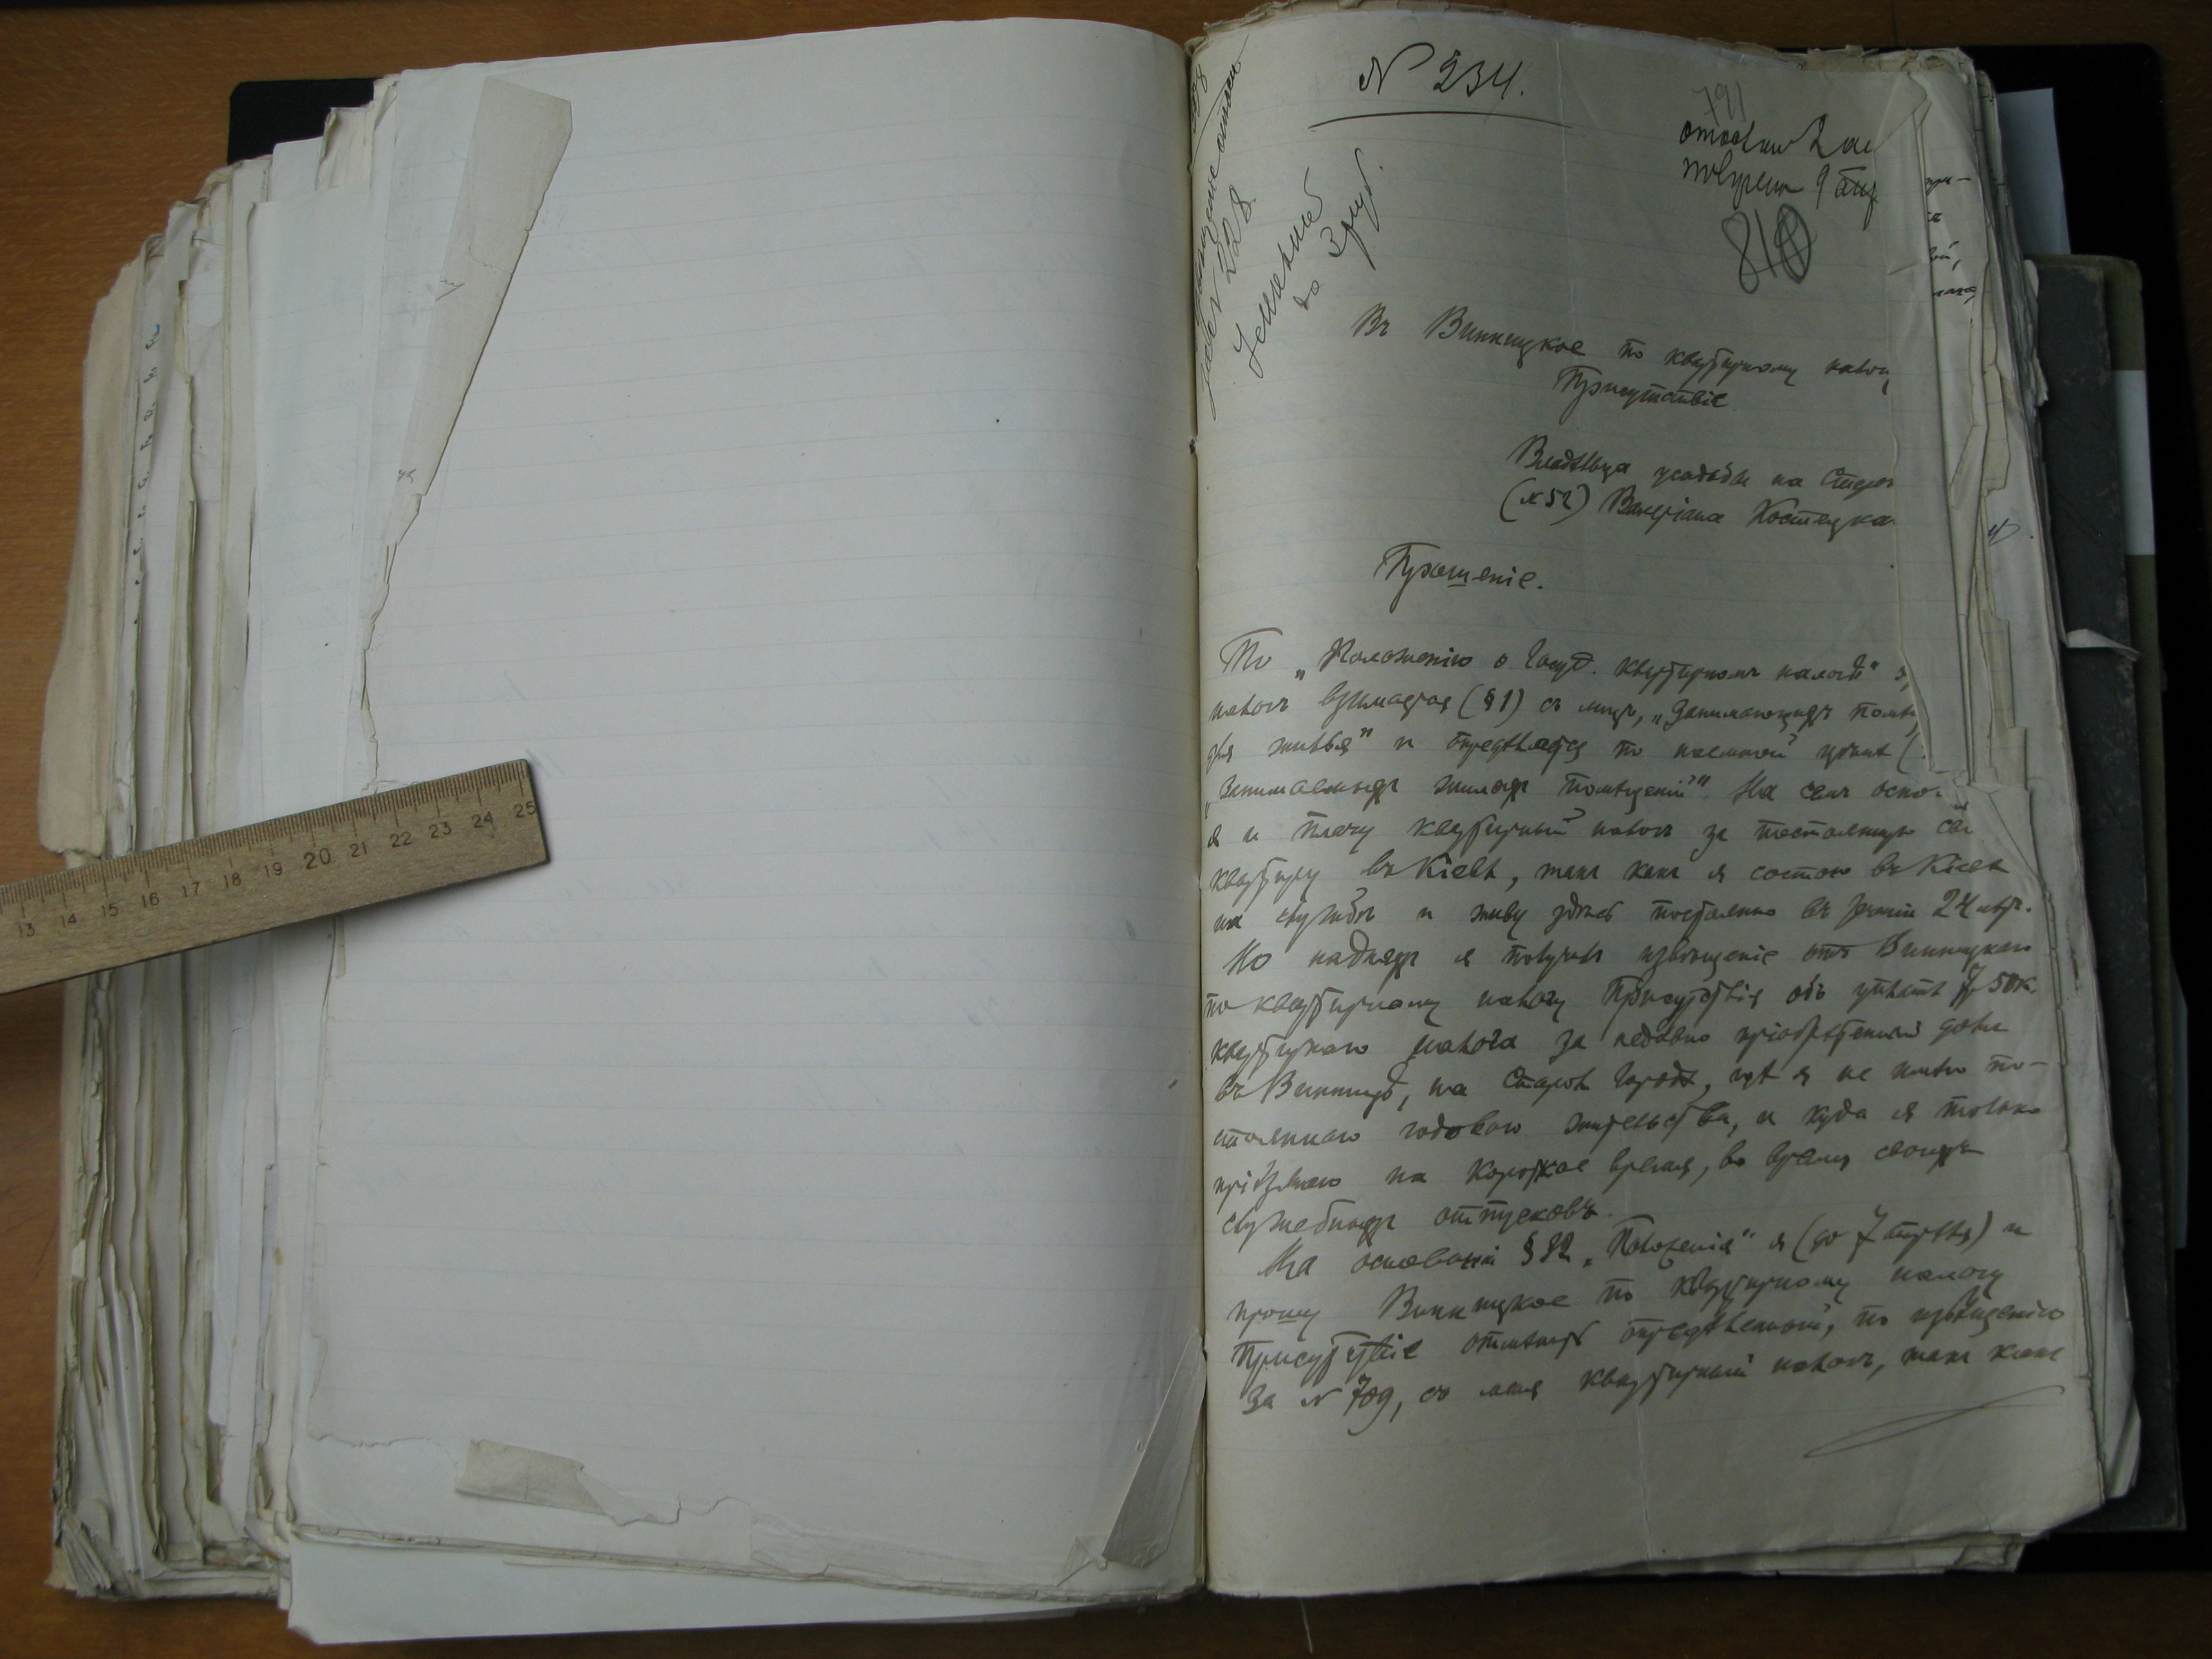 N 234.
791
отослан 2
получен 9 авг
810
N 228.
Уменьшить
до 3 руб.
Въ Винницкое по квартирному налог
Присутствіе
Владѣльца усадьбы на Стар
(N 52) Валеріана Костецка
Прошеніе.
По „Положенію о Госуд. квартирномъ налогѣ"
налогъ взимается (§ 1) съ лицъ, „занимающихъ помѣ
для жилья" и опредѣляется по наемной цѣнѣ (
„занимаемыхъ жилыхъ помѣщеній". На семъ осно
я и плачу квартирный налогъ за постоянную св
квартиру въ Кіевѣ, такъ какъ я состою въ Кіевѣ
на службѣ и живу здѣсь постоянно въ теченіи 24 лѣтъ.
Но надняхъ я получилъ извѣщеніе отъ Винницкаго
по квартирному налогу Присутствія объ уплатѣ 7 р 50 к.
квартирнаго налога за недавно пріобрѣтенный домъ
въ Винницѣ, на Старомъ Городѣ, гдѣ я не имѣю по-
стояннаго годоваго жительства, и куда я только
пріѣзжаю на короткое время, во время своихъ
служебныхъ отпусковъ.
На основаніи § 32 „Положенія" я (до 7 апрѣля) и
прошу Винницкое по квартирному налогу
Присутствіе отмѣнить опредѣленный, по извѣщенію
за N 709, съ меня квартирный налогъ, такъ какъ